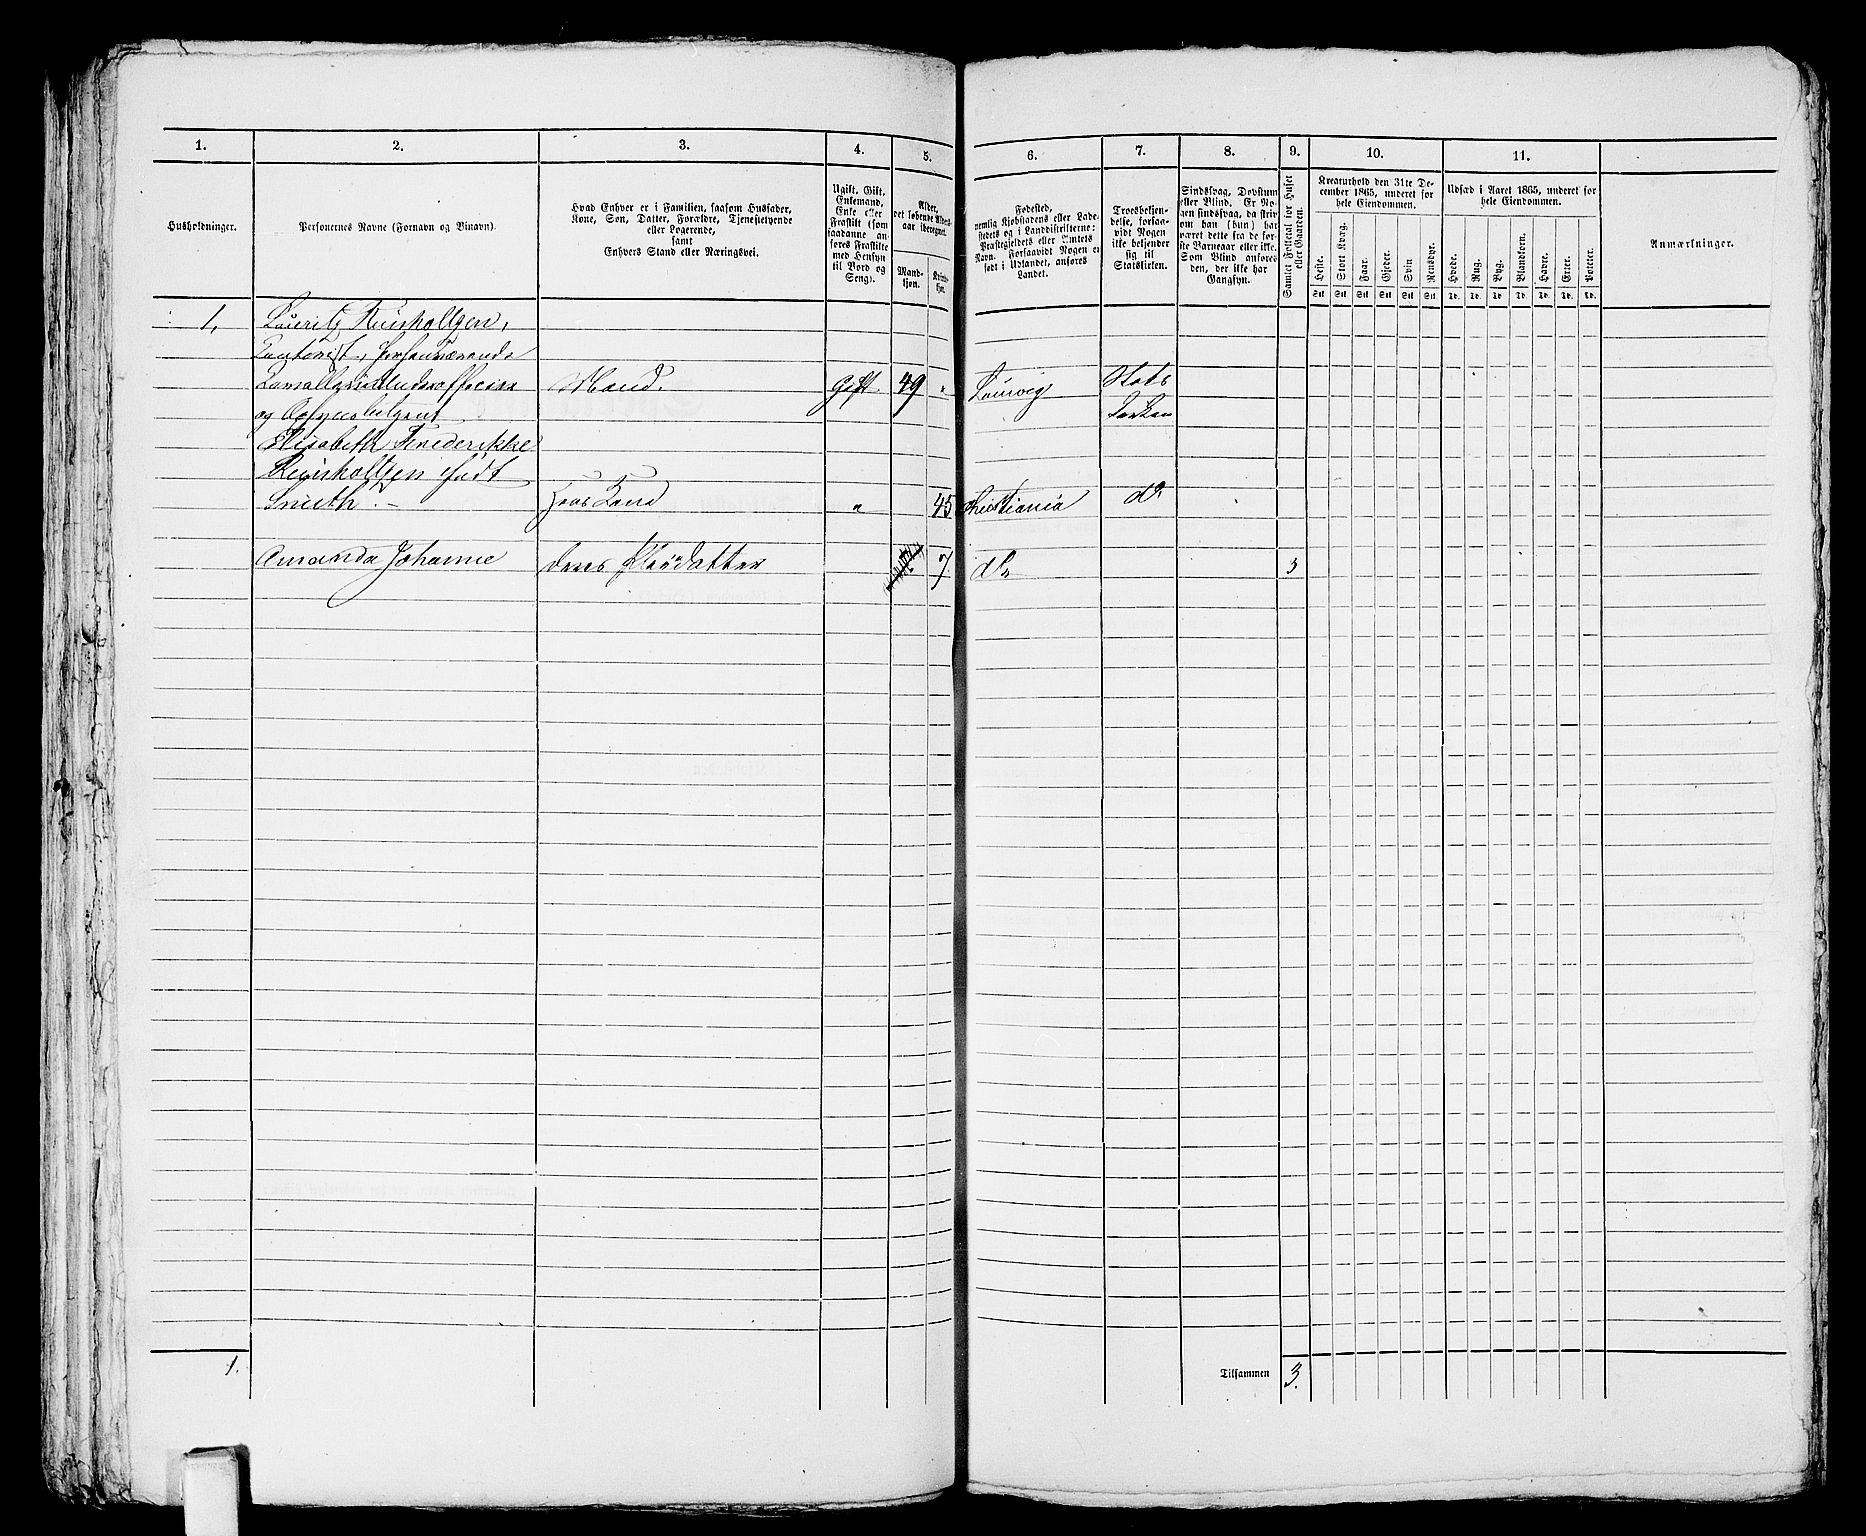 1. 2. 3. 4. 5. 6. 7. 8. 9. 10. 11.
Husholdninger.
Personernes Navne (Fornavn og Tilnavn).
Hvad Enhver er i Familien, saasom Husfader,
Kone, Søn, Datter, Forældre, Tjenestetyende
eller Logerende,
samt
Enhvers Stand eller Næringsvei.
Ugift, Gift,
Enkemand,
Enke eller
Fraskilt (som
saadanne an-
føres Fraskilte
med Hensyn
til Bord og
Seng).
Alder,
det løbende Alders-
aar iberegnet.
Mand-
kjøn.
Kvinde-
kjøn.
Fødested,
nemlig Kjøbstadens eller Lade-
stedets og i Landdistrikterne:
Præstegjeldets eller Amtets
Navn. Forsaavidt Nogen er
født i Udlandet, anføres
Landet.
Troesbekjen-
delse, forsaa-
vidt Nogen
ikke bekjender
sig til
Statskirken.
Sindssvag, Døvstum
eller Blind. Er No-
gen sindssvag, da skriv
om han (hun) har
været dette fra de før-
ste Barneaar eller ikke.
Som Blind anføres
den, der ikke har
Gangsyn.
Samlet Folketal for Huset
eller Gaarden.
Kreaturhold den 31te De-
cember 1865, underet for
hele Eiendommen.
Heste. Stort Kvæg. Faar. Gjeder. Svin Rensdyr.
Stk Stk Stk Stk Stk Stk
Udsæd i Aaret 1865, underet for
hele Eiendommen.
Hvede. Rug. Byg. Blandkorn. Havre. Erter. Poteter.
Td. Td. Td Td. Td. Td. Td.
Anmærkninger.
1, Lauritz
Mand. Gift. 49 " Laurvig Stats
og
Kirken
Elisabeth Frederikke
født
Smith. – hans Kone " 45 Christiania do
Amanda Johanne deres Pleiedatter 7. do 3
1. Tilsammen 3.